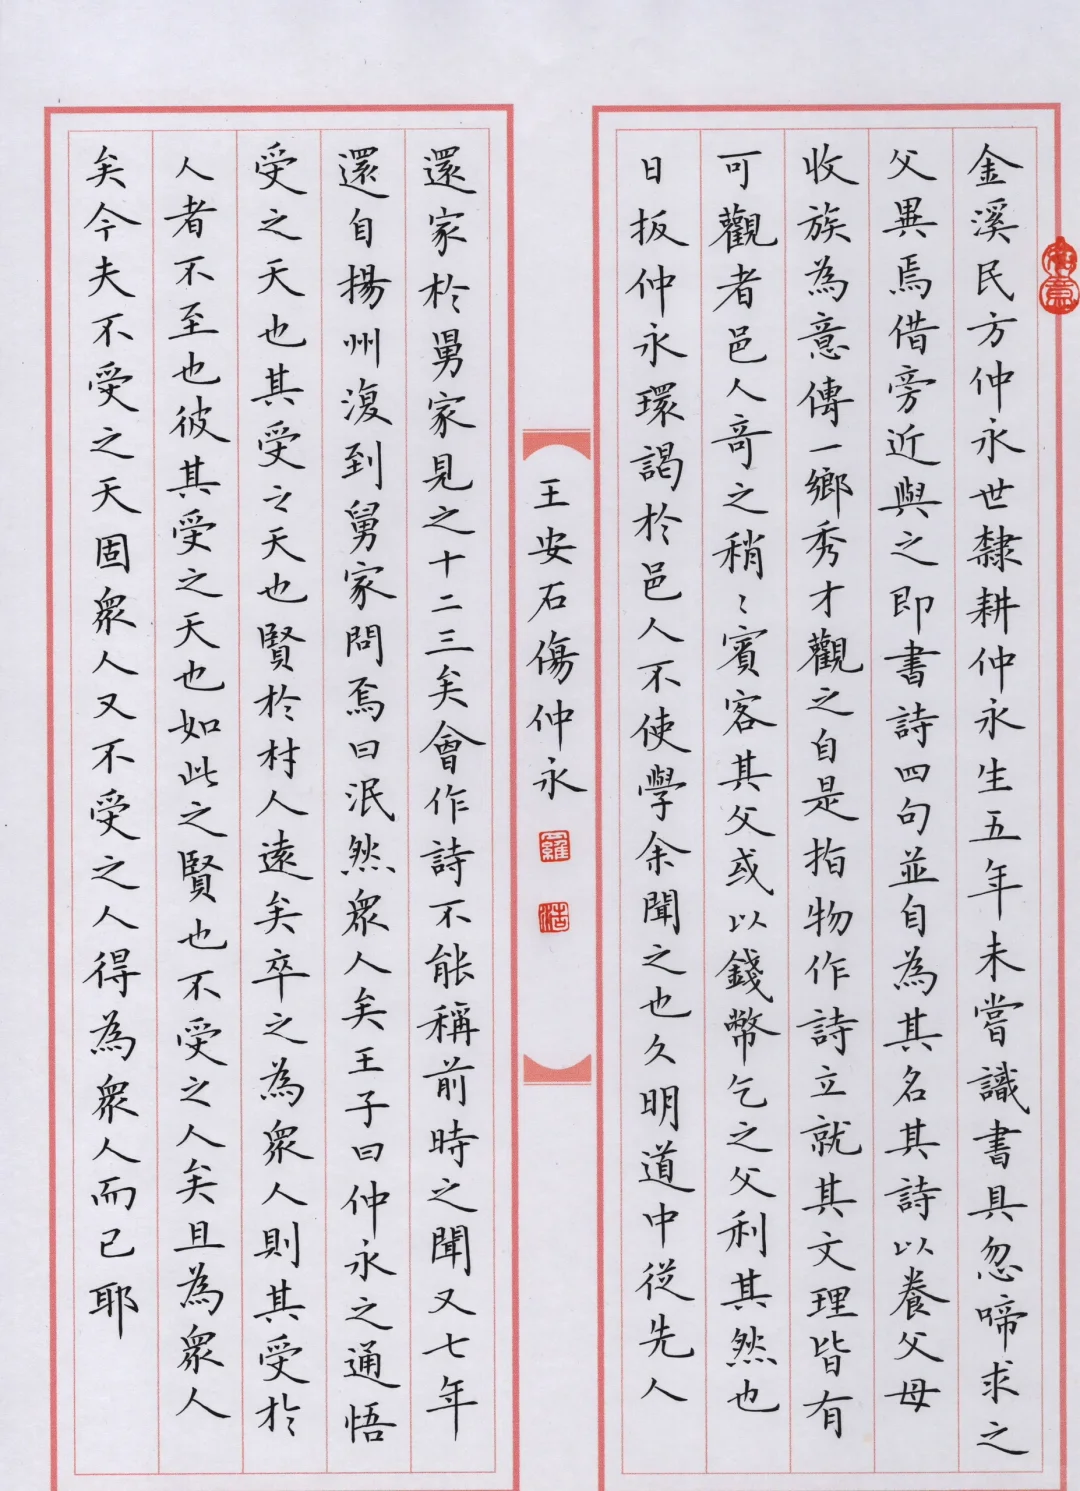 金溪民方仲永世隸耕仲永生五年未嘗識書具忽啼求之
父異焉借旁近與之即書詩四句並自為其名其詩以養父母
收族為意傳一鄉秀才觀之自是指物作詩立就其文理皆有
可觀者邑人奇之稍〻賓客其父或以錢幣乞之父利其然也
日扳仲永環謁於邑人不使學余聞之也久明道中從先人
王安石傷仲永
羅
浩
還家於舅家見之十二三矣會作詩不能稱前時之聞又七年
還自揚州復到舅家問焉曰泯然眾人矣王子曰仲永之通悟
受之天也其受之天也賢於村人遠矣卒之為眾人則其受於
人者不至也彼其受之天也如此之賢也不受之人矣且為眾人
矣今夫不受之天固眾人又不受之人得為眾人而已耶